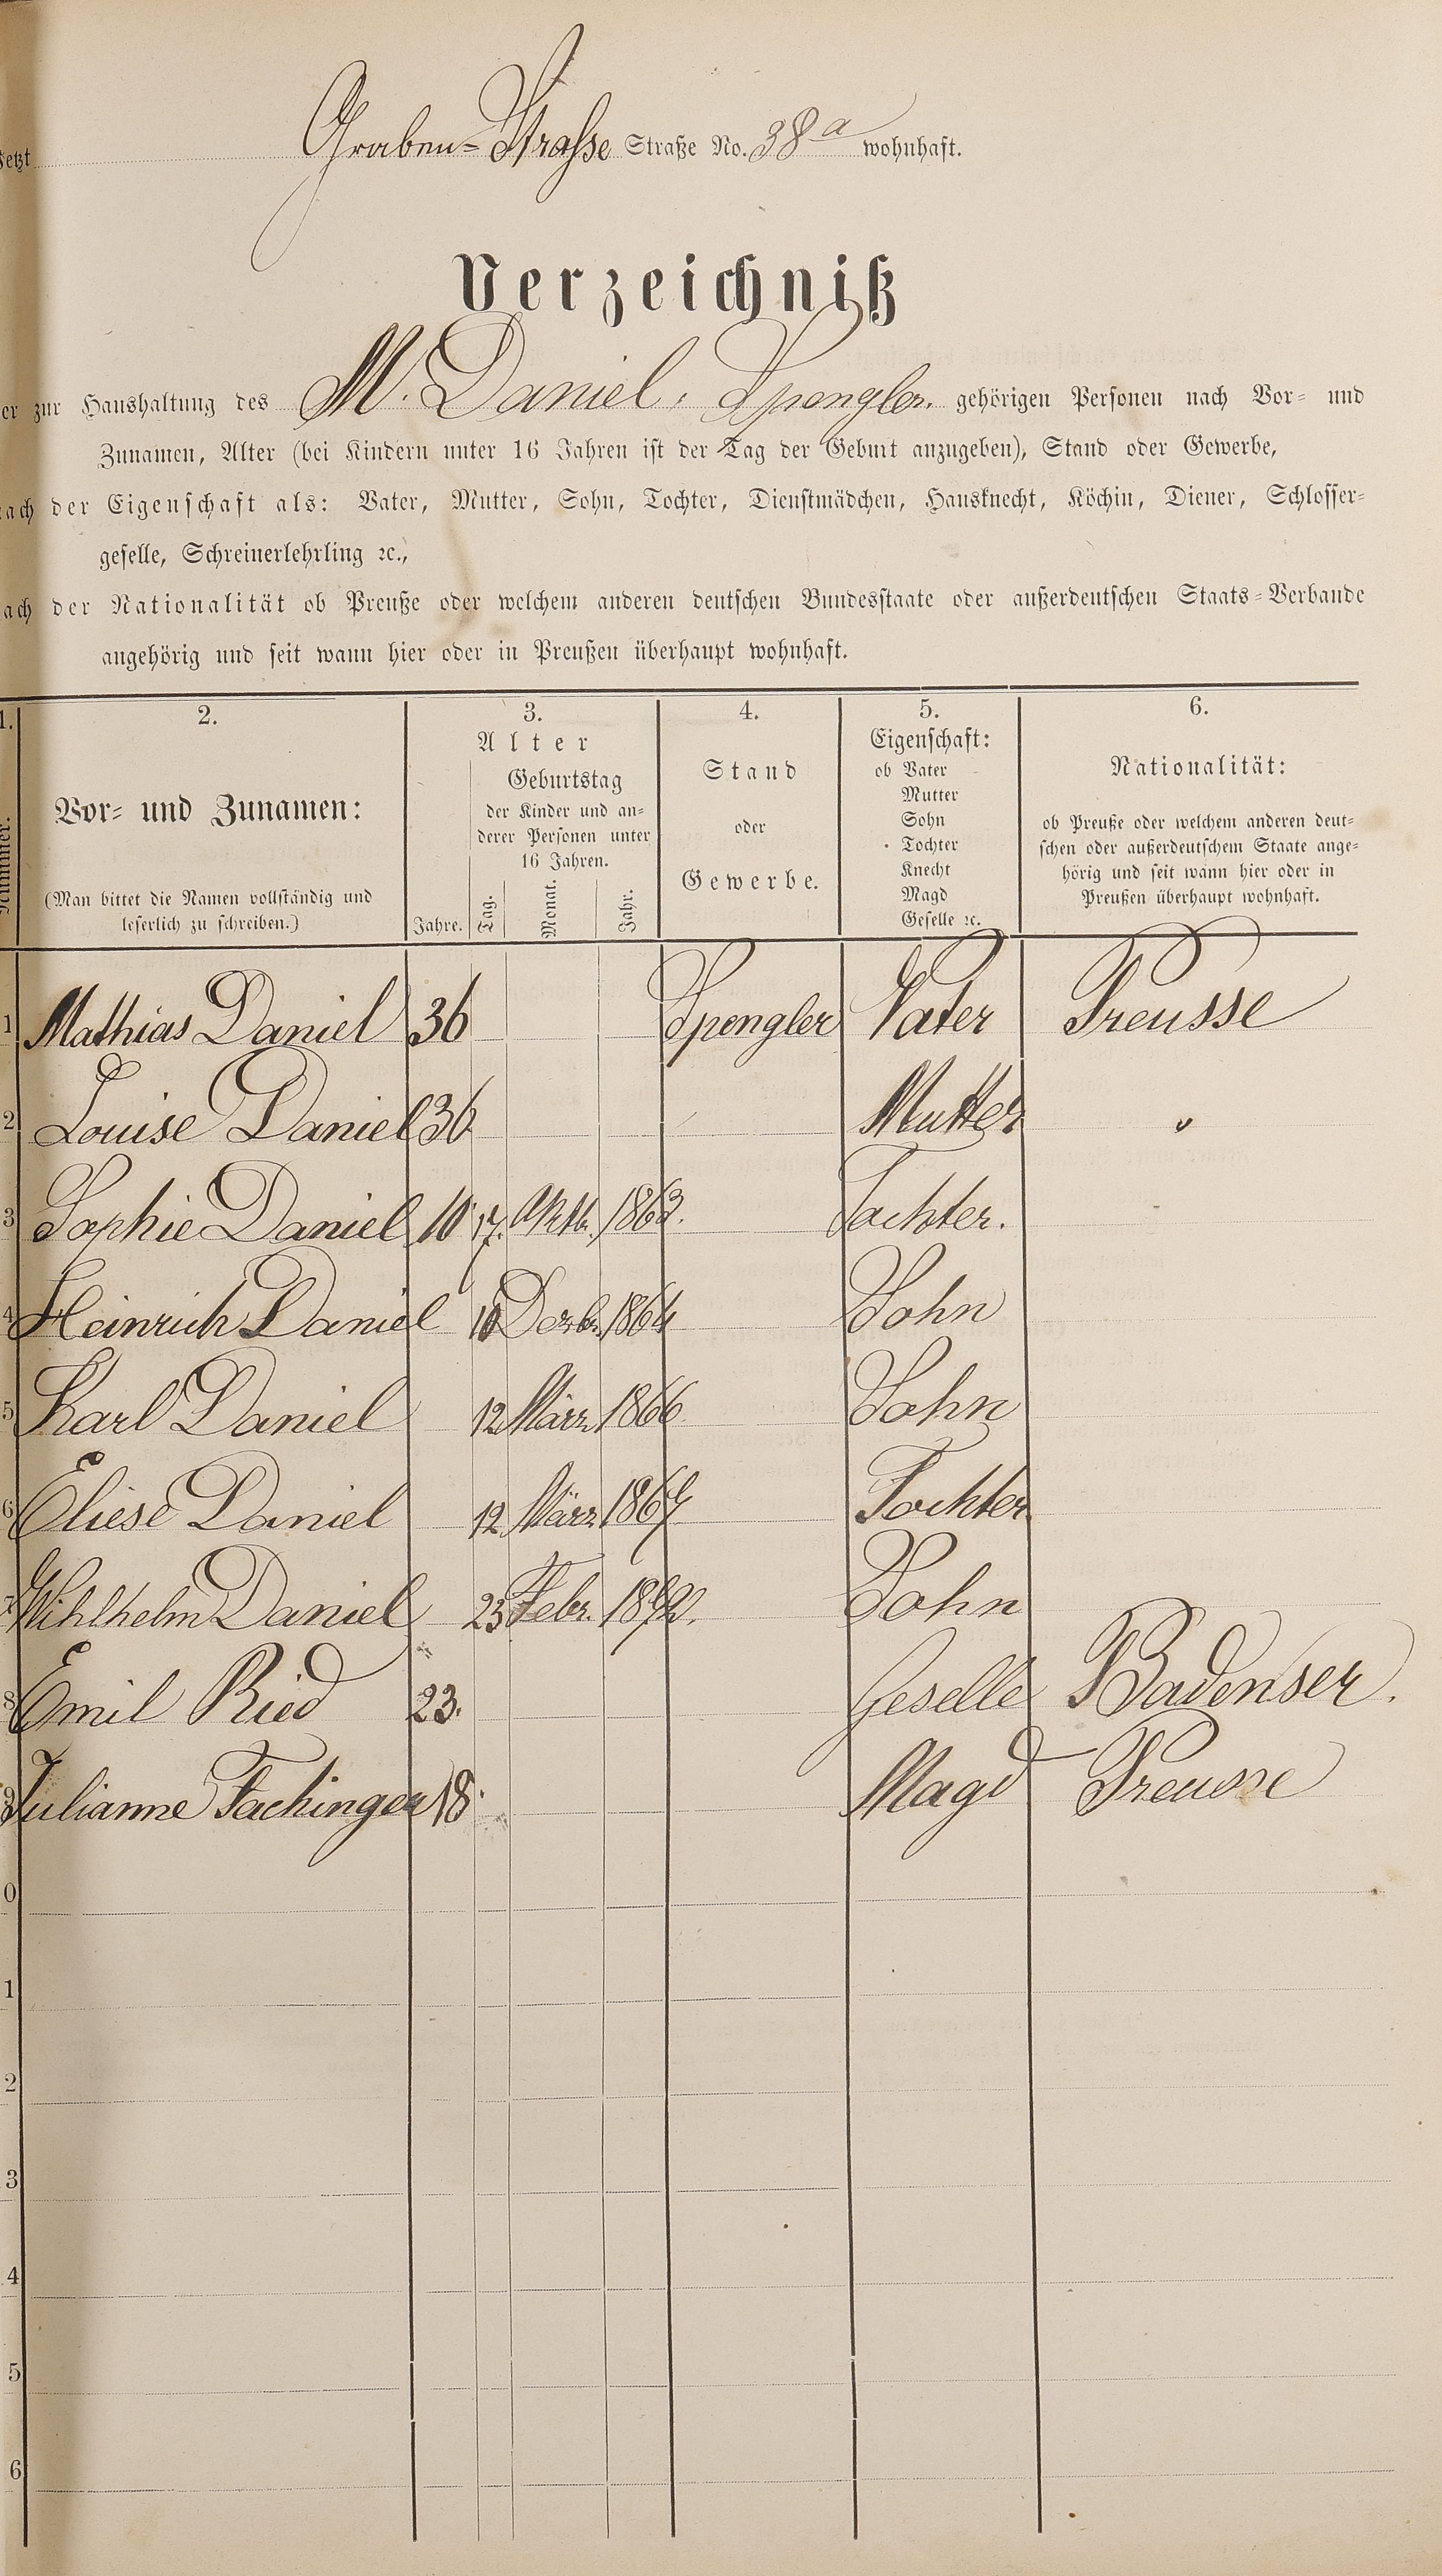 Jetzt Graben=Strasse Straße No. 38a wohnhaft.
Verzeichniß
er zur Haushaltung des M. Daniel, Spengler. gehörigen Personen nach Vor- und
Zunamen, Alter (bei Kindern unter 16 Jahren ist der Tag der Geburt anzugeben), Stand oder Gewerbe,
nach der Eigenschaft als: Vater, Mutter, Sohn, Tochter, Dienstmädchen, Hausknecht, Köchin, Diener, Schlosser-
geselle, Schreinerlehrling ꝛc.,
nach der Nationalität ob Preuße oder welchem anderen deutschen Bundesstaate oder außerdeutschen Staats-Verbande
angehörig und seit wann hier oder in Preußen überhaupt wohnhaft.
1. 2. 3. 4. 5. 6.
Nummer.
Vor- und Zunamen:
(Man bittet die Namen vollständig und
leserlich zu schreiben.)
Alter
Geburtstag
der Kinder und an-
derer Personen unter
16 Jahren.
Jahre. Tag. Monat. Jahr.
Stand
oder
Gewerbe.
Eigenschaft:
ob Vater
Mutter
Sohn
Tochter
Knecht
Magd
Geselle ꝛc.
Nationalität:
ob Preuße oder welchem anderen deut-
schen oder außerdeutschem Staate ange-
hörig und seit wann hier oder in
Preußen überhaupt wohnhaft.
1 Mathias Daniel 36 Spengler Vater Preusse
2 Louise Daniel 36 Mutter "
3 Sophie Daniel 10 17. 1863. Tochter.
4 Heinrich Daniel 10 Dezb. 1864 Sohn
5 Karl Daniel 12 März 1866 Sohn
6 Eliese Daniel 12 März 1867 Tochter
7 Wihlhelm Daniel 23 Febr. 1872. Sohn
8 Emil Ried 23. Geselle Badenser.
9 Julianne Fachinger 18. Magd Preusse
0
1
2
3
4
5
6